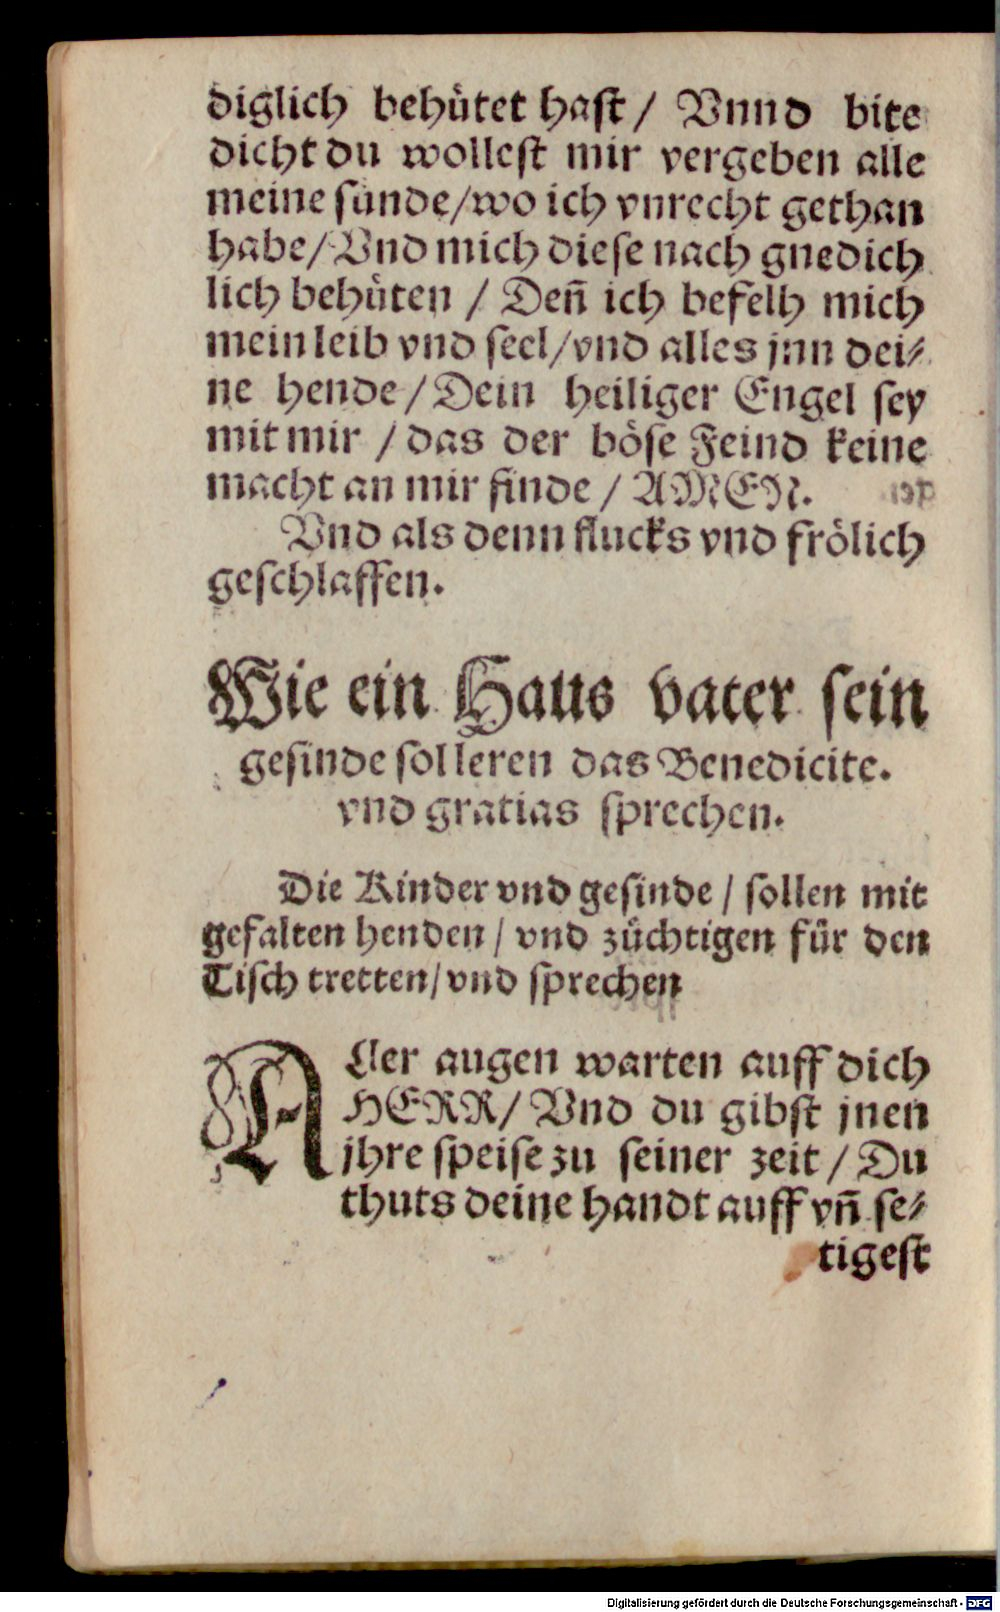 diglich behütet hast / Vnnd bite
dicht du wollest mir vergeben alle
meine sunde/wo ich vnrecht gethan
habe/ Vnd mich diese nach gnedich
lich behüten / Deñ ich befelh mich
mein leib vnd seel/vnd alles jnn dei⸗
ne hende / Dein heiliger Engel sey
mit mir / das der böse Feind keine
macht an mir finde / AMEN.
Vnd als denn flucks vnd frölich
geschlaffen.
Wie ein Haus vater sein
gesinde sol leren das Benedicite.
vnd gratias sprechen.
Die Kinder vnd gesinde / sollen mit
gefalten henden / vnd züchtigen für den
Tisch tretten/ vnd sprechen
ALler augen warten auff dich
HERR/ Vnd du gibst jnen
jhre speise zu seiner zeit / Du
thuts deine handt auff vñ se⸗
tigest
Digitalisierung gefördert durch die Deutsche Forschungsgemeinschaft - DFG